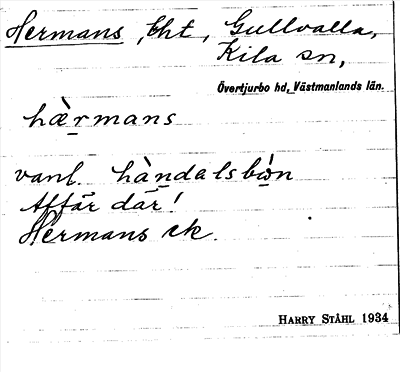 Hermans, lht, Gullvalla,
Kila sn,
Övertjurbo hd, Västmanlands län.
hæ̀rmans
vanl. hàndalsbòn
Affär där!
Hermans ek.
HARRY STÅHL 1934